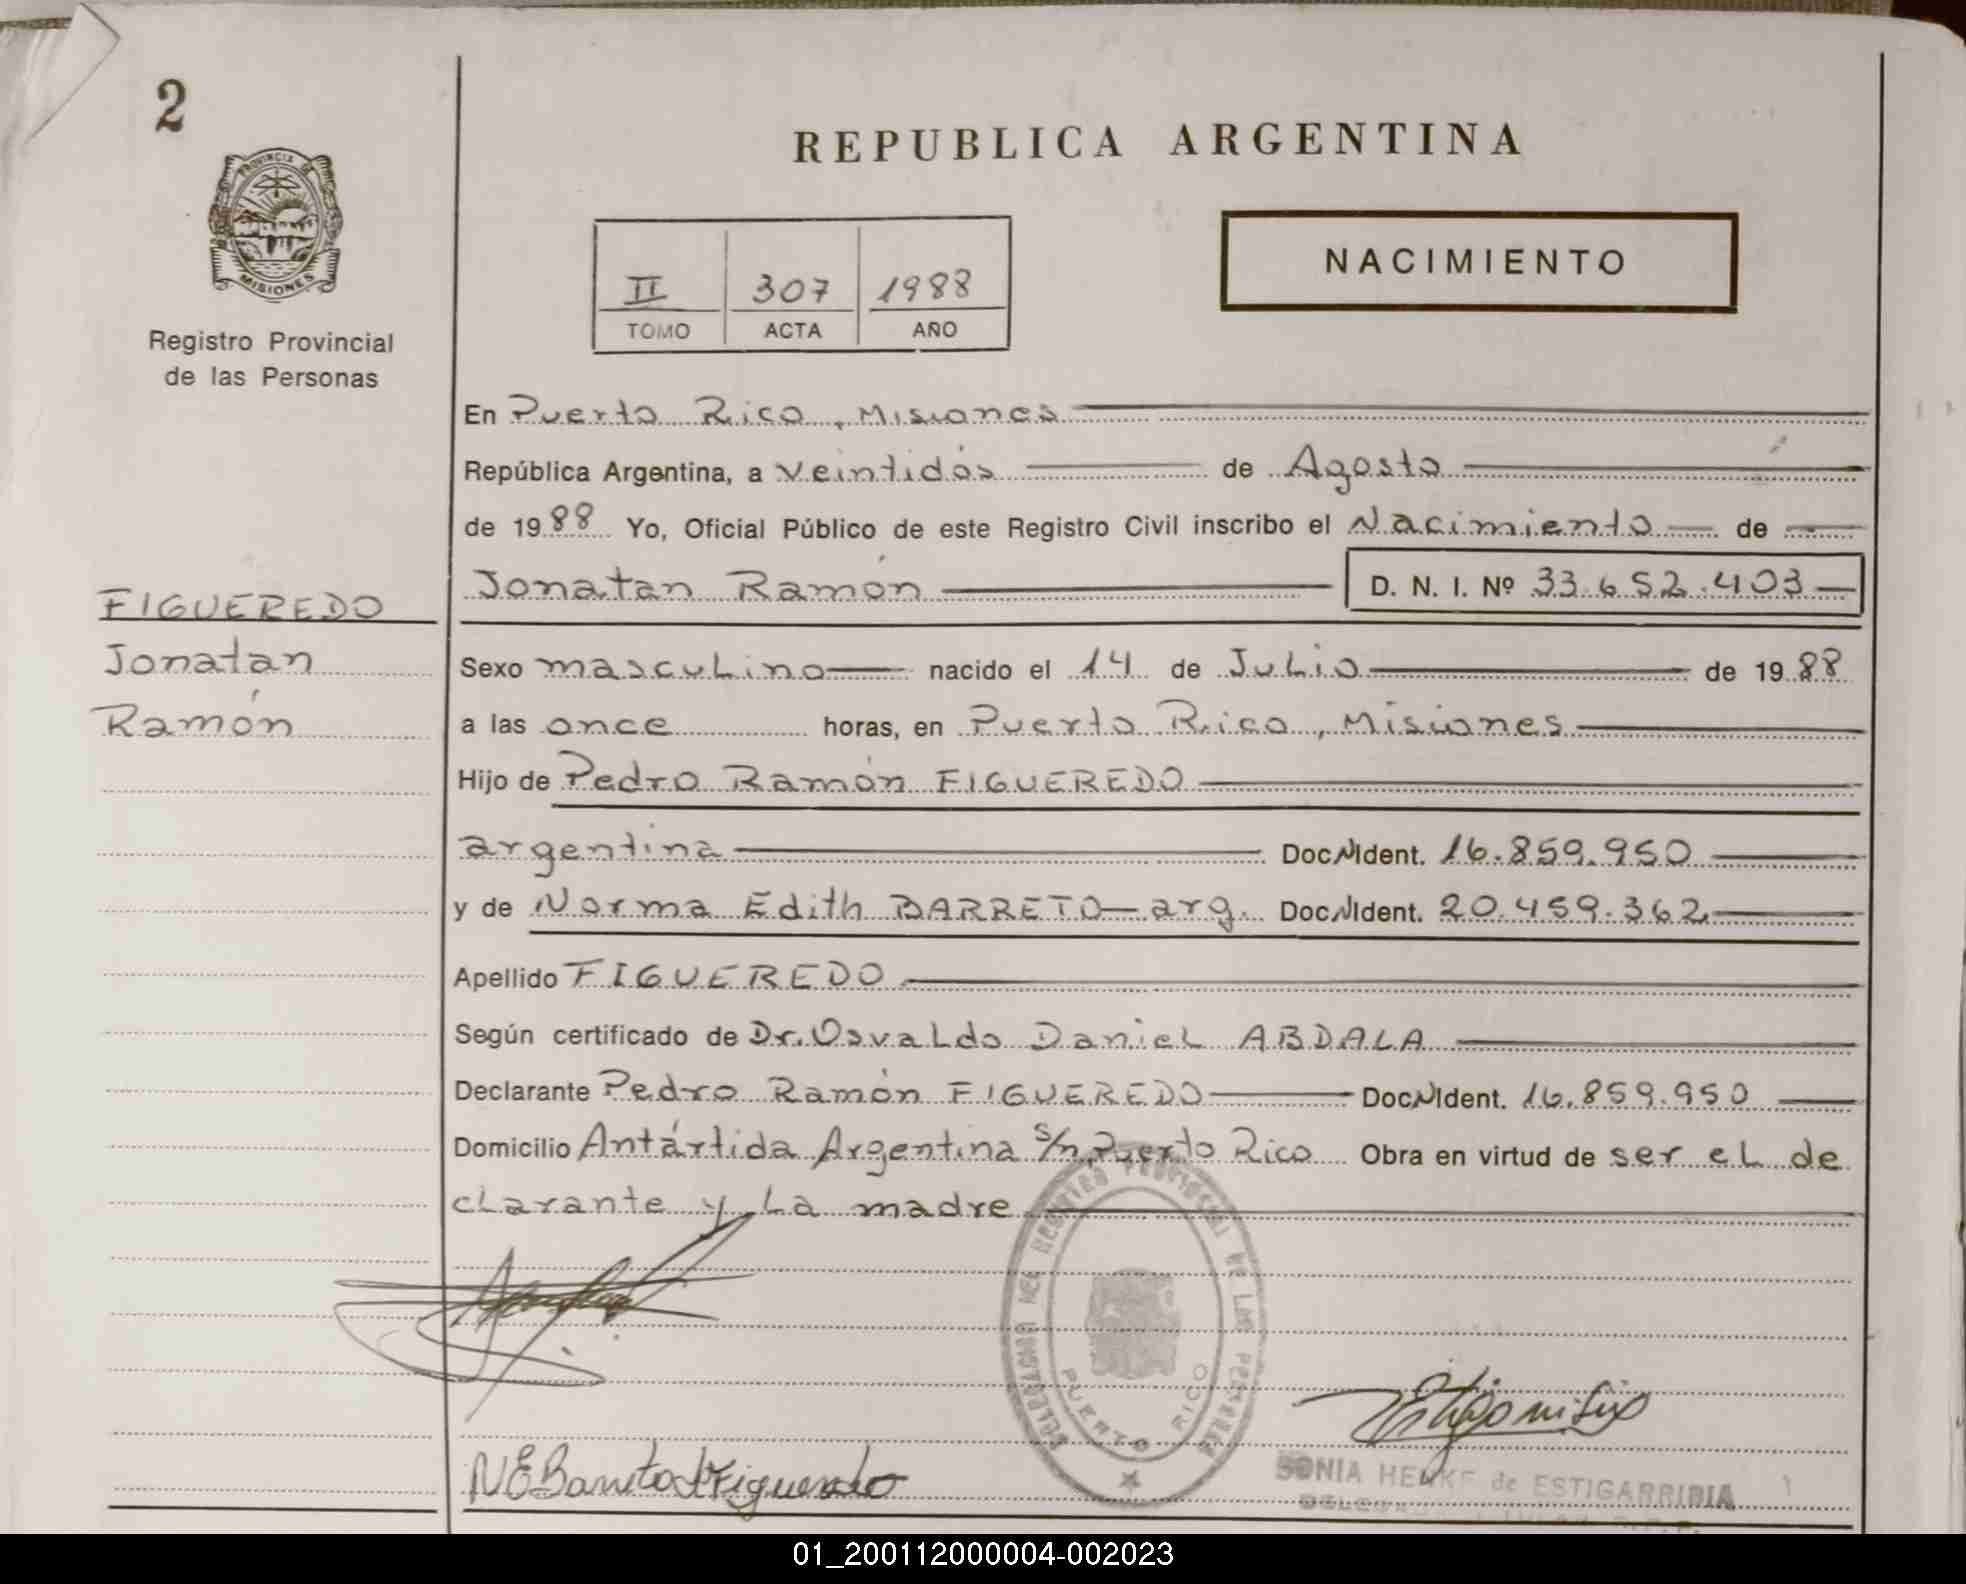 2
REPUBLICA ARGENTINA
PROVINCIA DE
MISIONES
Registro Provincial
de las Personas
II 307 1988
TOMO ACTA AÑO
NACIMIENTO
En Puerto Rico, Misiones
República Argentina, a veintidós de Agosto
de 1988 Yo, Oficial Público de este Registro Civil inscribo el Nacimiento de
Jonatan Ramón D. N. I. Nº 33.652.403
FIGUEREDO
Jonatan
Ramón
Sexo masculino nacido el 14 de Julio de 1988
a las once horas, en Puerto Rico, Misiones
Hijo de Pedro Ramón FIGUEREDO
argentina Doc.N.Ident. 16.859.950
y de Norma Edith BARRETO-arg. Doc.N.Ident. 20.459.362
Apellido FIGUEREDO
Según certificado de Dr. Osvaldo Daniel ABDALA
Declarante Pedro Ramón FIGUEREDO Doc.N.Ident. 16.859.950
Domicilio Antártida Argentina s/n, Puerto Rico Obra en virtud de ser el de
clarante y la madre
DELEGACION DEL REGISTRO PROVINCIAL DE LAS PERSONAS
PUERTO RICO
NEBarreto d Figueredo
SONIA HENKE de ESTIGARRIBIA
01_200112000004-002023